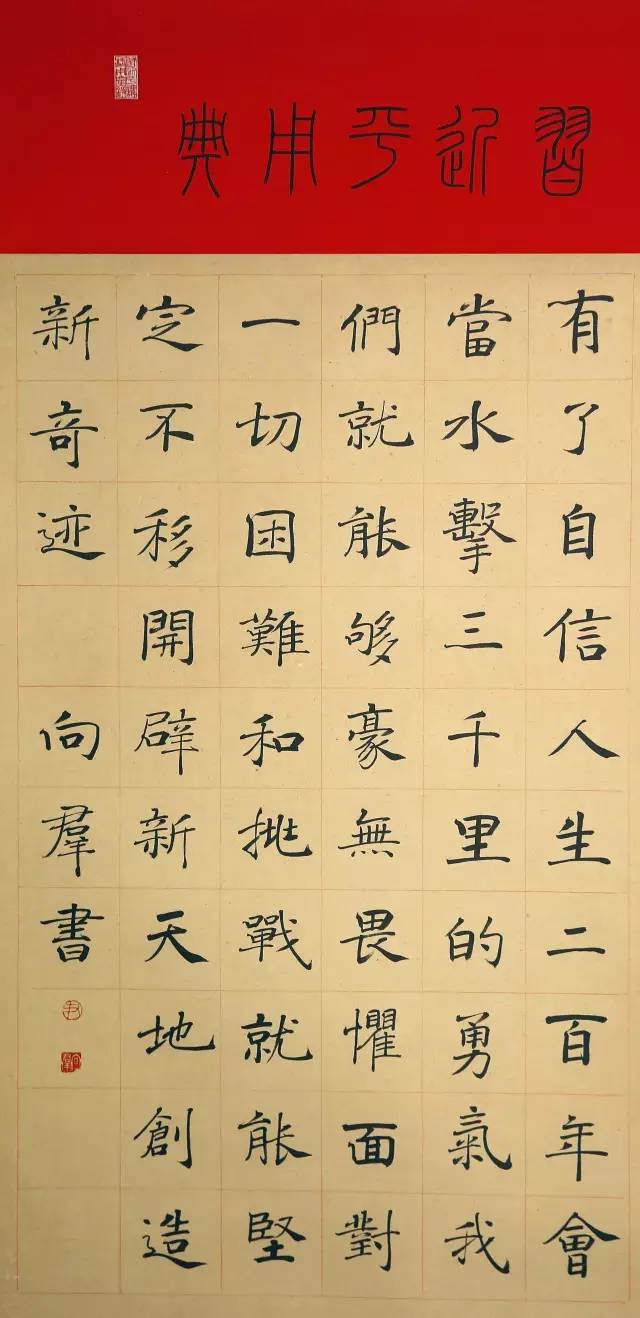 習近平用典
有了自信人生二百年會
當水擊三千里的勇氣我
們就能够豪無畏懼面對
一切困難和挑戰就能堅
定不移開辟新天地創造
新奇迹 向羣書